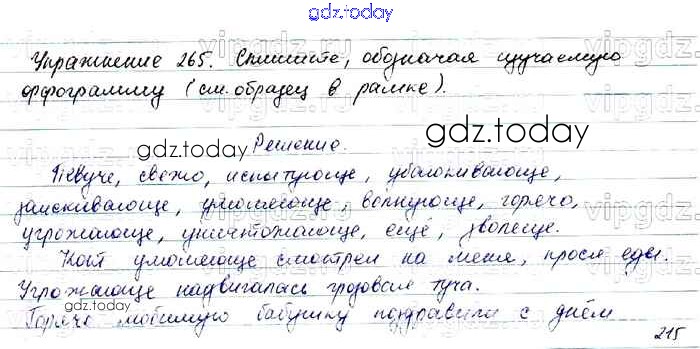 gdz.today
Упражнение 265. Спишите, обозначая изучаемую
орфограмму (см. образец в рамке).
gdz.today
Решение.
gdz.today
Певуче, свежо, испытующе, убаюкивающе,
заискивающе, умоляюще, волнующе, горячо,
угрожающе, уничтожающе, ещё, зловеще.
Кот умоляюще смотрел на меня, прося еды.
Угрожающе надвигалась грозовая туча.
gdz.today
Горячо любимую бабушку поздравили с днём
215